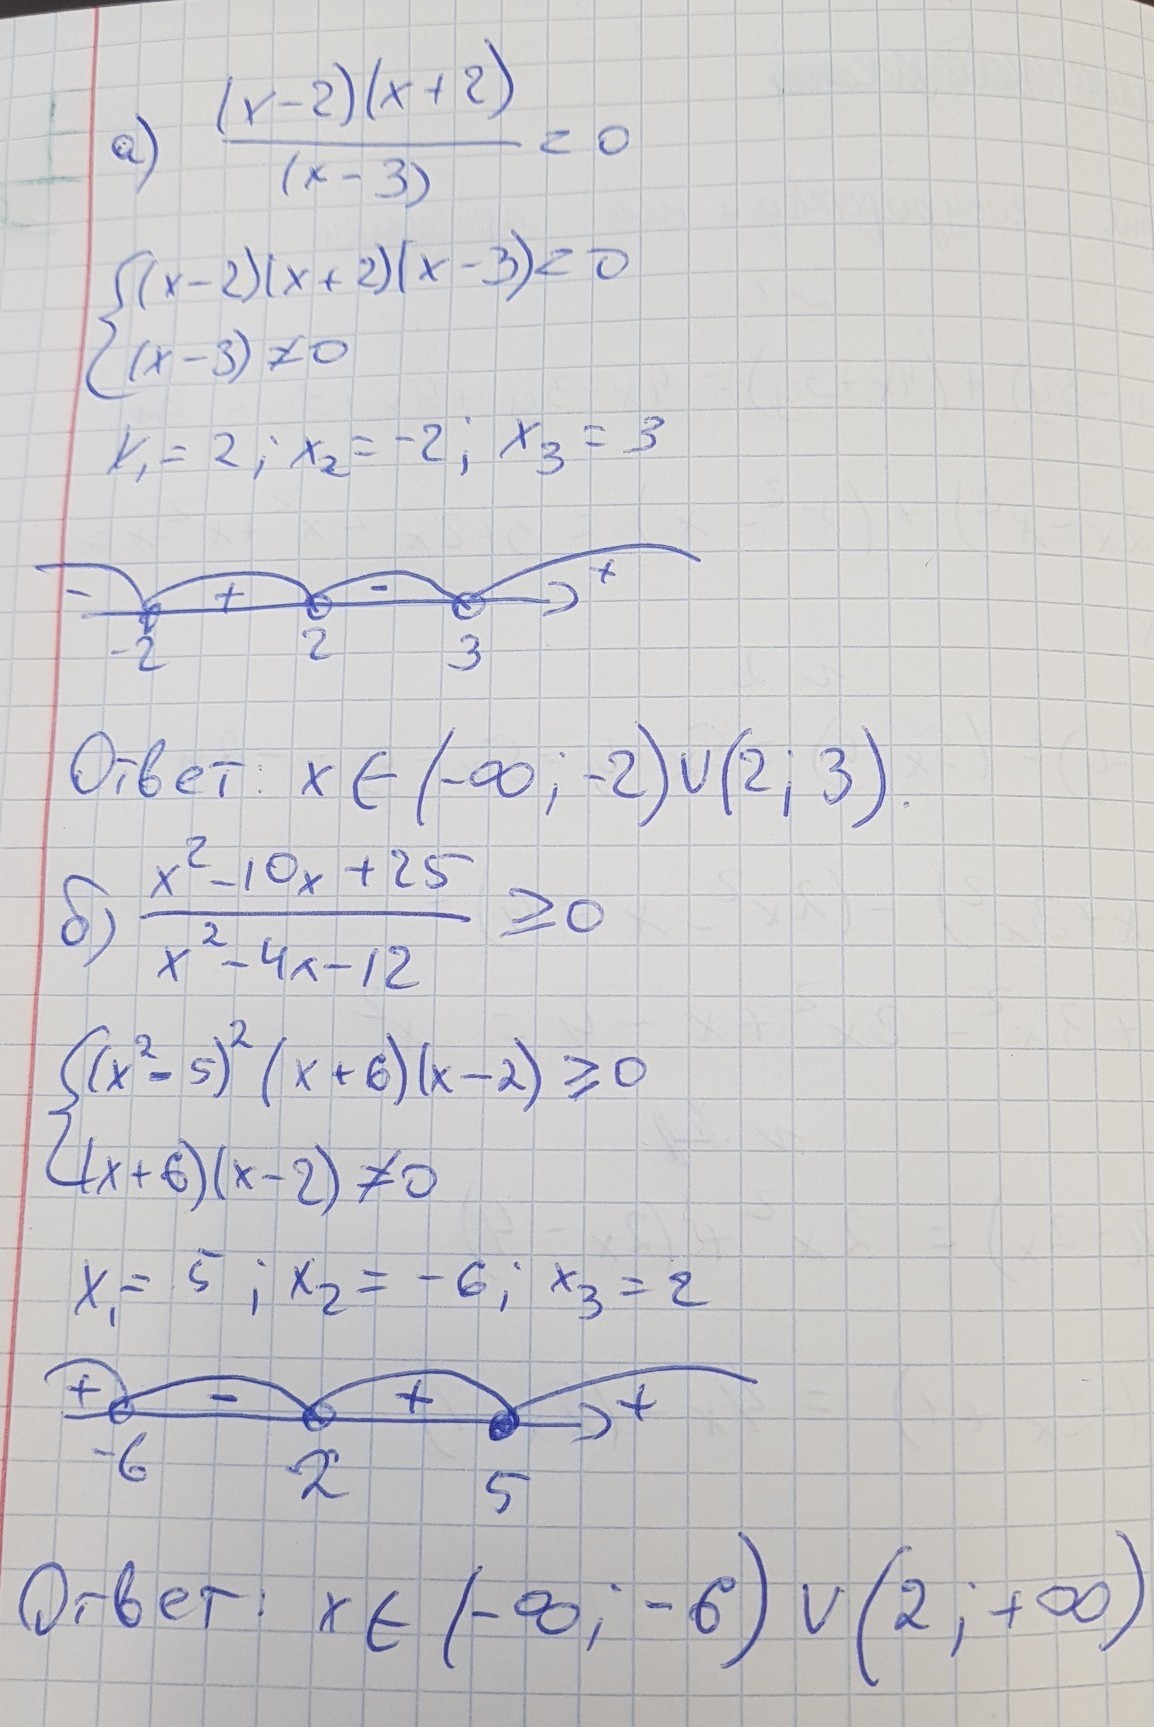 а) (x-2)(x+2)
(x-3) < 0
{(x-2)(x+2)(x-3)<0
(x-3)≠0
x₁=2; x₂=-2; x₃=3
- + - +
-2 2 3
Ответ: x∈(-∞; -2)∪(2; 3).
б) x²-10x+25
x²-4x-12 ≥0
{(x²-5)²(x+6)(x-2)≥0
(x+6)(x-2)≠0
x₁=5; x₂=-6; x₃=2
+ - + +
-6 2 5
Ответ: x∈(-∞; -6)∪(2; +∞)